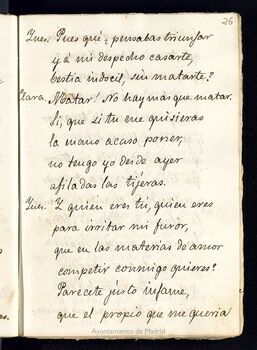 26
Ynes. Pues qué ¿pensabas triunfar
y á mi despecho casarte,
bestia indocil, sin matarte?
Clara. Matar! No hay mas que matar.
Si, que si tu me quisieras
la mano acaso poner,
no tengo yo desde ayer
afiladas las tijeras.
Ynes. Y quien eres tú, quien eres
para irritar mi furor,
que en las materias de amor
competir conmigo quieres?
Parecete justo infame,
que el propio que me queria
Ayuntamiento de Madrid